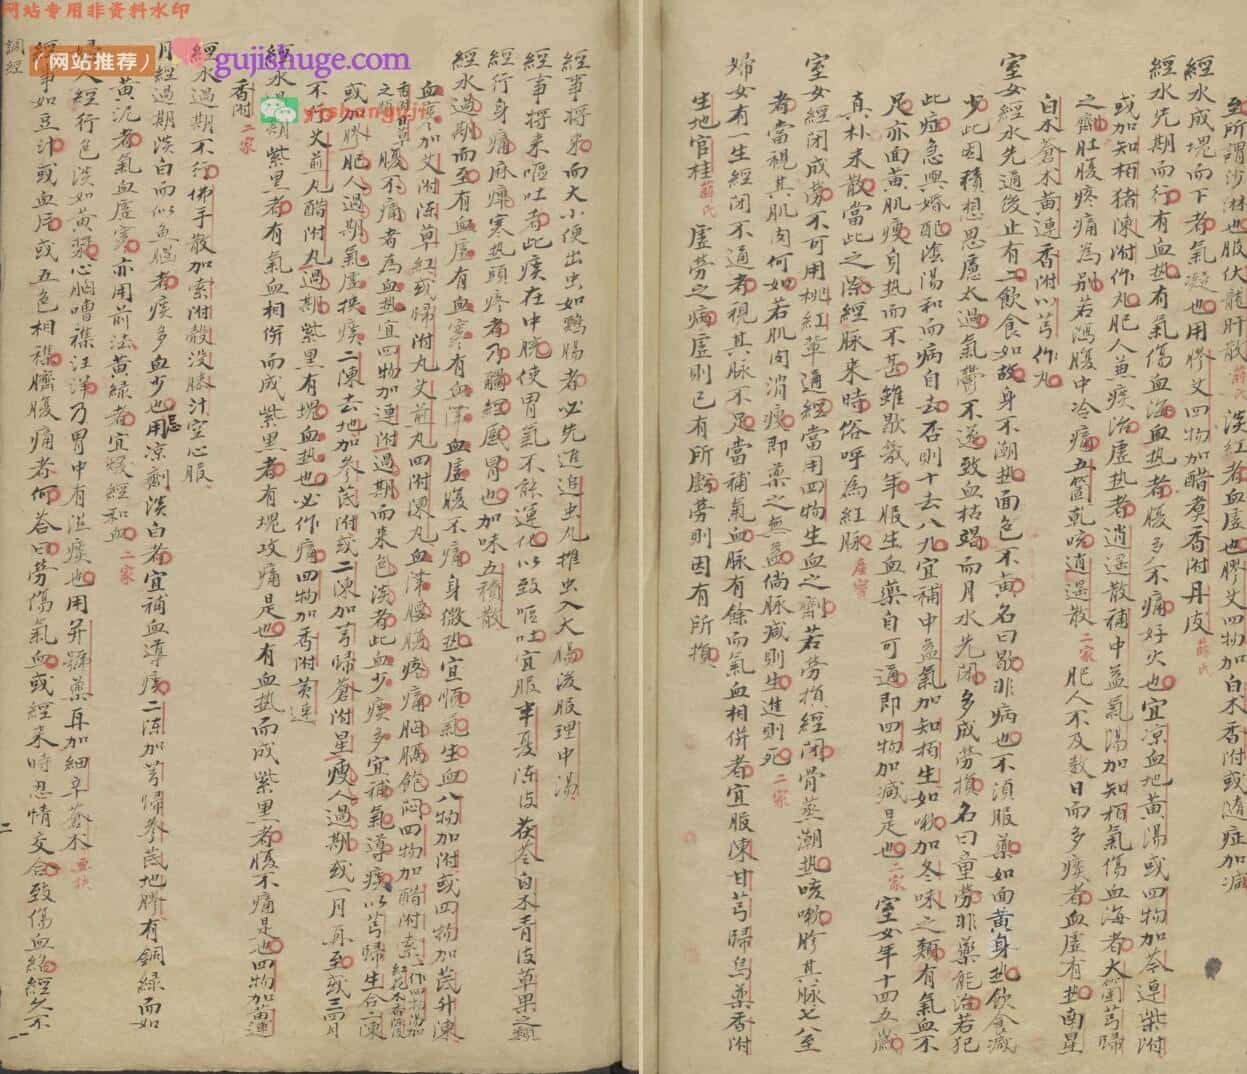 网站专用非资料水印
(网站推荐)
gujishuge.com
yishanguji
至所謂沙淋也服伏龍肝散薛氏淡紅者血虛也膠艾四物加白朮香附或随症加减
經水成塊而下者氣凝也用膠艾四物加醋煑香附丹皮薛氏
經水先期而行有血热有氣傷血海血热者腹多不痛好火也宜凉血地黄湯或四物加芩連柴附
或加知栢猪陳附作丸肥人兼痰治虛热者逍遥散補中益氣湯加知栢氣傷血海者大薗芎歸
之劑肚腹疼痛為别若瀉腹中冷痛五箇乾咳逍遥散二家肥人不及数日而多痰者血虛有热南星
白朮蒼朮黄連香附以芎作丸
室女經水先通後止有二飲食如故身不潮热面色不黄名曰歇非病也不湏服藥如面黄身热飲食减
少此因積想思慮太過氣鬱不遂致血枯竭而月水先閉多成劳損名曰童劳非藥能治若犯
此症急與婚配陰陽和而病自去否則十去八九宜補中益氣加知栢生如嗽加冬味之類有氣血不
足亦面黄肌瘦身热而不甚雖歇幾年服生血藥自可通即四物加减是也二家室女年十四五歲
真朴未散當此之際經脉来時俗呼為紅脉產寳
室女經閉成劳不可用桃紅草通經當用四物生血之劑若劳損經閉骨蒸潮热咳嗽胗其脉七八至
者當視其肌肉何如若肌肉消瘦即藥之無益倘脉减則生進則死二家
婦女有一生經閉不通者視其脉不足當補氣血脉有餘而氣血相併者宜服陳甘芎歸烏藥香附
生地官桂薛氏虛劳之病虛則已有所虧劳則因有所損
經事将来而大小便出虫如鷄腸者必先進追虫丸推虫入大腸後服理中湯
經事将来嘔吐者此痰在中脘使胃氣不能運化以致嘔吐宜服半夏陳皮茯苓白朮青皮草果之類
經行身痛麻痺寒热頭疼者乃觸經感冒也加味五積散
經水過期而至有血虛有血寒有血滯血虛腹不痛身微热宜順氣生血八物加附或四物加芪升陳
血寒加艾附陳草紅或歸附丸艾煎丸四附陳丸血滯腰腹疼痛胸膈飽悶四物加醋附索
腹不痛者為血热宜四物加連附過期而来色淡者此血少痰多宜補氣導痰以芎歸生合二陳
或加膠肥人過期氣虛挾痰二陳去地加参芪附或二陳加芎歸蒼附星瘦人過期或一月再至或三四月
不行艾煎丸醋附丸過期紫黒有塊血热也必作痛四物加香附黄連
經水過期紫黒者有氣血相併而成紫黒者有塊攻痛是也有血热而成紫黒者腹不痛是也四物加黄連
香附二家
經水過期不行佛手散加索附殻没膝汁空心服
月經過期淡白而似魚腦者痰多血少也忌用凉劑淡白者宜補血導痰二陳加芎歸参芪地臍有銅緑而如
黄泥者氣血虛寒亦用前法黄緑者宜煖經和血二家
婦人經行色淡如黄漿心胸嘈襍汪洋乃胃中有湿痰也用前號藥再加細辛蒼朮
經事如豆汁或血片或五色相襍臍腹痛者何荅曰劳傷氣血或經来時恣情交合致傷血絡經久不
調經
二